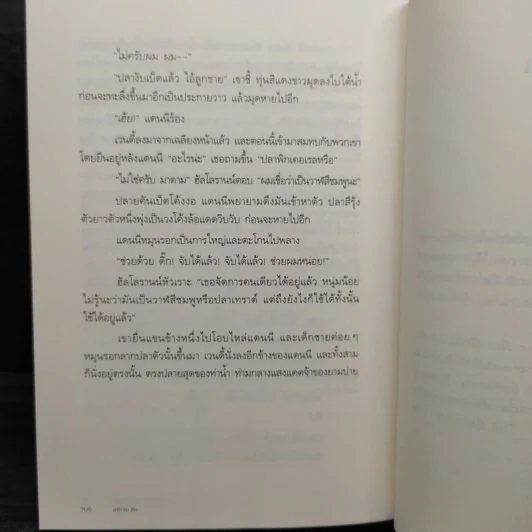 “ไม่ครับผม ผม--”
“ปลางับเบ็ดแล้ว ไอ้ลูกชาย” เขาชี้ ทุ่นสีแดงขาวมุดลงไปใต้น้ำ
ก่อนจะทะลึ่งขึ้นมาอีกเป็นประกายวาว แล้วมุดหายไปอีก
“เฮ้ย!” แดนนีร้อง
เวนดี้ลงมาจากเฉลียงหน้าแล้ว และตอนนี้เข้ามาสมทบกับพวกเขา
โดยยืนอยู่หลังแดนนี “อะไรน่ะ” เธอถามขึ้น “ปลาพิกเคอเรลหรือ”
“ไม่ใช่ครับ มาดาม” ฮัลโลรานน์ตอบ “ผมเชื่อว่าเป็นวาฬสีชมพูนะ”
ปลายคันเบ็ดโค้งงอ แดนนีพยายามดึงมันเข้าหาตัว ปลาสีรุ้ง
ตัวยาวตัวหนึ่งพุ่งเป็นวงโค้งล้อแดดวิบวับ ก่อนจะหายไปอีก
แดนนีหมุนรอกเป็นการใหญ่และตะโกนไปพลาง
“ช่วยด้วย ดิ๊ก! จับได้แล้ว! จับได้แล้ว! ช่วยผมหน่อย!”
ฮัลโลรานน์หัวเราะ “เธอจัดการคนเดียวได้อยู่แล้ว หนุ่มน้อย
ไม่รู้นะว่ามันเป็นวาฬสีชมพูหรือปลาเทราต์ แต่ถึงยังไงก็ใช้ได้ทั้งนั้น
ใช้ได้อยู่แล้ว”
เขายื่นแขนข้างหนึ่งไปโอบไหล่แดนนี และเด็กชายค่อย ๆ
หมุนรอกลากปลาตัวนั้นขึ้นมา เวนดี้นั่งลงอีกข้างของแดนนี และทั้งสาม
ก็นั่งอยู่ตรงนั้น ตรงปลายสุดของท่าน้ำ ท่ามกลางแสงแดดจ้าของยามบ่าย
สตีเวน คิง